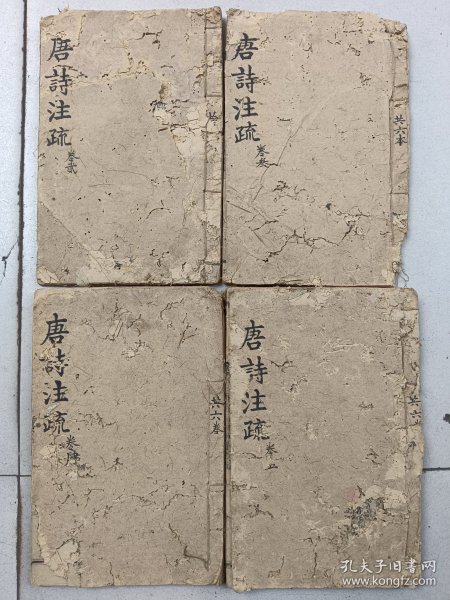 唐詩注疏
卷貳
唐詩注疏
卷叁
共六本
唐詩注疏
卷肆
共六卷
唐詩注疏
卷五
共六
孔夫子旧书网
www.kongfz.com